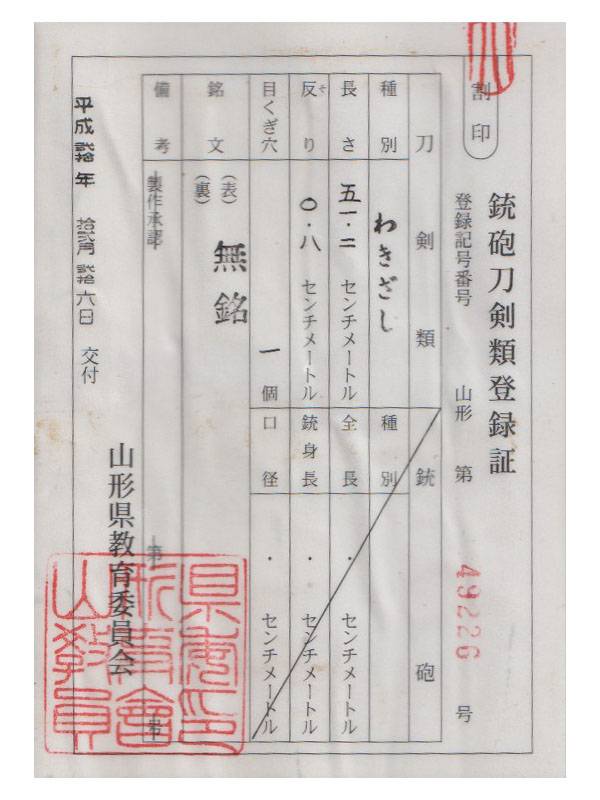 割印
銃砲刀剣類登録証
登録記号番号 山形 第 49226 号
刀剣類
種別 わきざし
長さ 五一・二 センチメートル
反り 〇・八 センチメートル
そ
目くぎ穴 一 個
銘文 (表) 無銘
(裏)
備考 製作承認 第 号
銃砲
種別
全長 ・ センチメートル
銃身長 ・ センチメートル
口径 ・ センチメートル
平成弐拾年 拾弐月弐拾六日 交付
山形県教育委員会